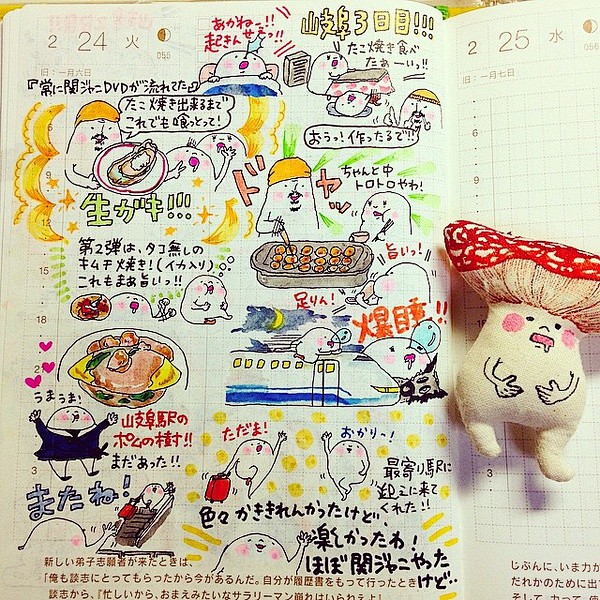 2 24 火
056
旧:一月六日
2 25 水
旧:一月七日
あかねー!!
起きんせぇっ!!
山支阜3日目!!!
たこ焼き食べ
たぁーいっ!!
『常に関ジャニDVDが流れてた』
たこ焼き出来るまで
これでも喰っとって!
おうっ!作ったるで!!
生ガキ!!!
ドヤッ
ちゃんと中
トロトロやわ!
第2弾は、タコ無しの
キムチ焼き!(イカ入り)
これもまあ旨いっ!!
旨いっ!
足りん!
爆睡!!
うまうま!
山支阜駅の
ポムの樹!!
まだあった!!
ただま!
おかりー!
最寄り馬駅に
迎えに来て
くれた!!
またね!
色々かききれんかったけど、
楽しかったわ!
ほぼ関ジャニやった
けど…
9
12
15
18
21
3
新しい弟子志願者が来たときは、
「俺も談志にとってもらったから今があるんだ。自分が履歴書をもって行ったとき
談志から、『忙しいから、おまえみたいなサラリーマン崩れはいられえよ!
じぶんに、いま力が
だれかのために出